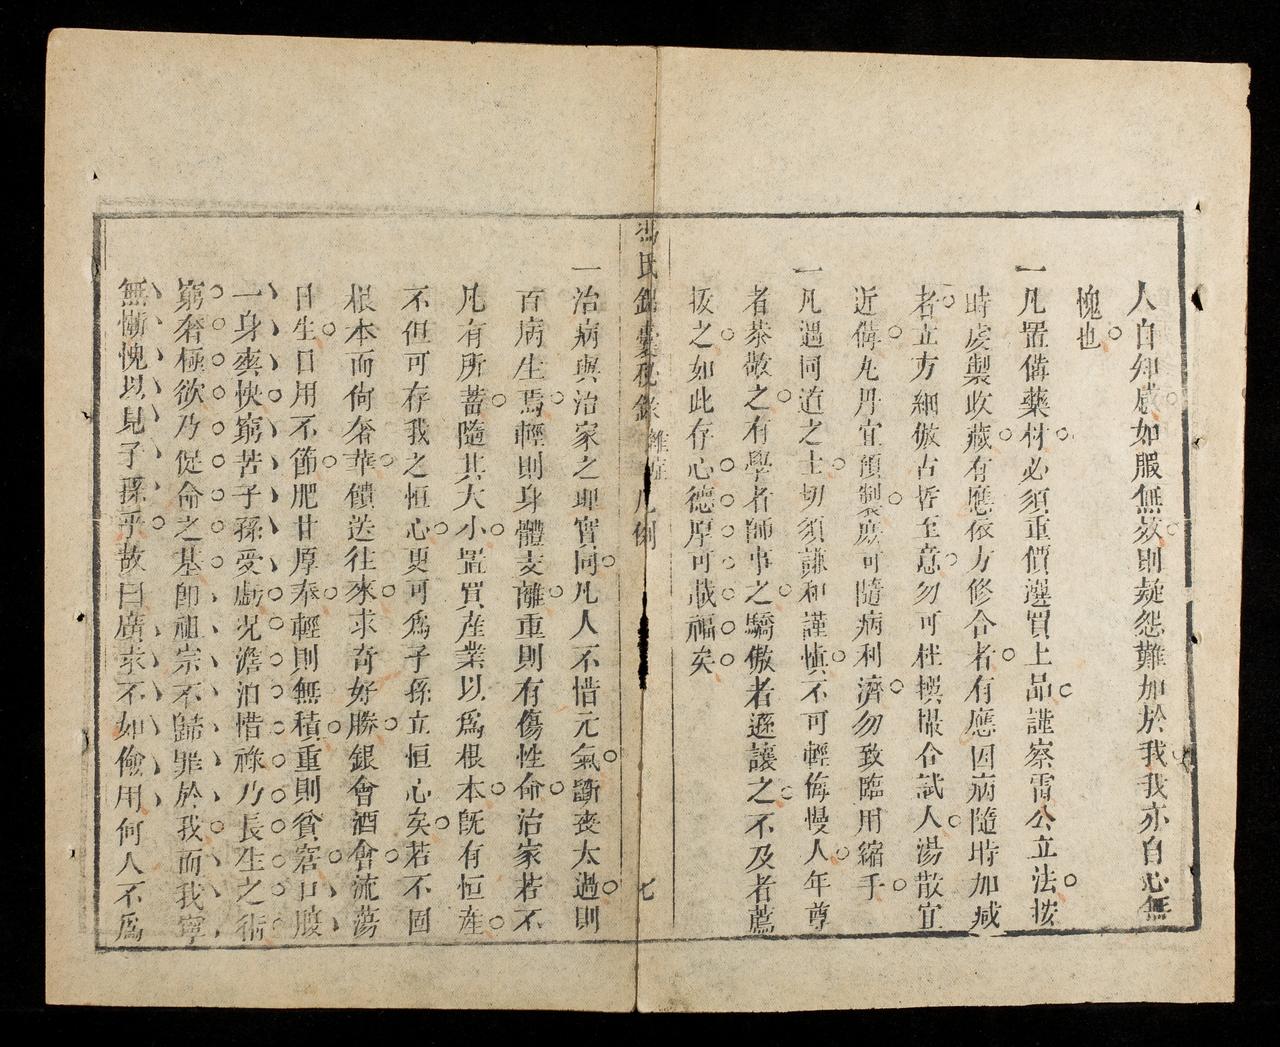 人自知感如服無效則疑怨難加於我我亦自心無
愧也
一凡置備藥材必須重價選買上品謹察雷公立法按
時虔製收藏有應依方修合者有應因病隨時加减
者立方細倣古哲至意勿可杜撰撮合試人湯散宜
近備丸丹宜預製庶可隨病利濟勿致臨用縮手
一凡遇同道之士切須謙和謹慎不可輕侮慢人年尊
者恭敬之有學者師事之驕傲者遜讓之不及者薦
拔之如此存心德厚可載福矣
馮氏錦囊秘錄 雜症 凡例 七
一治病與治家之理實同凡人不惜元氣斵喪太過則
百病生焉輕則身體支離重則有傷性命治家若不
凡有所蓄隨其大小置買産業以爲根本旣有恒産
不但可存我之恒心更可爲子孫立恒心矣若不固
根本而徜奢華饋送往來求奇好勝銀會酒會流蕩
日生日用不節肥甘厚奉輕則無積重則貧窘口腹
一身爽快窮苦子孫受虧况澹泊惜祿乃長生之術
窮奢極欲乃促命之基卽祖宗不歸罪於我而我寧
無慚愧以見子孫乎故曰廣求不如儉用何人不爲